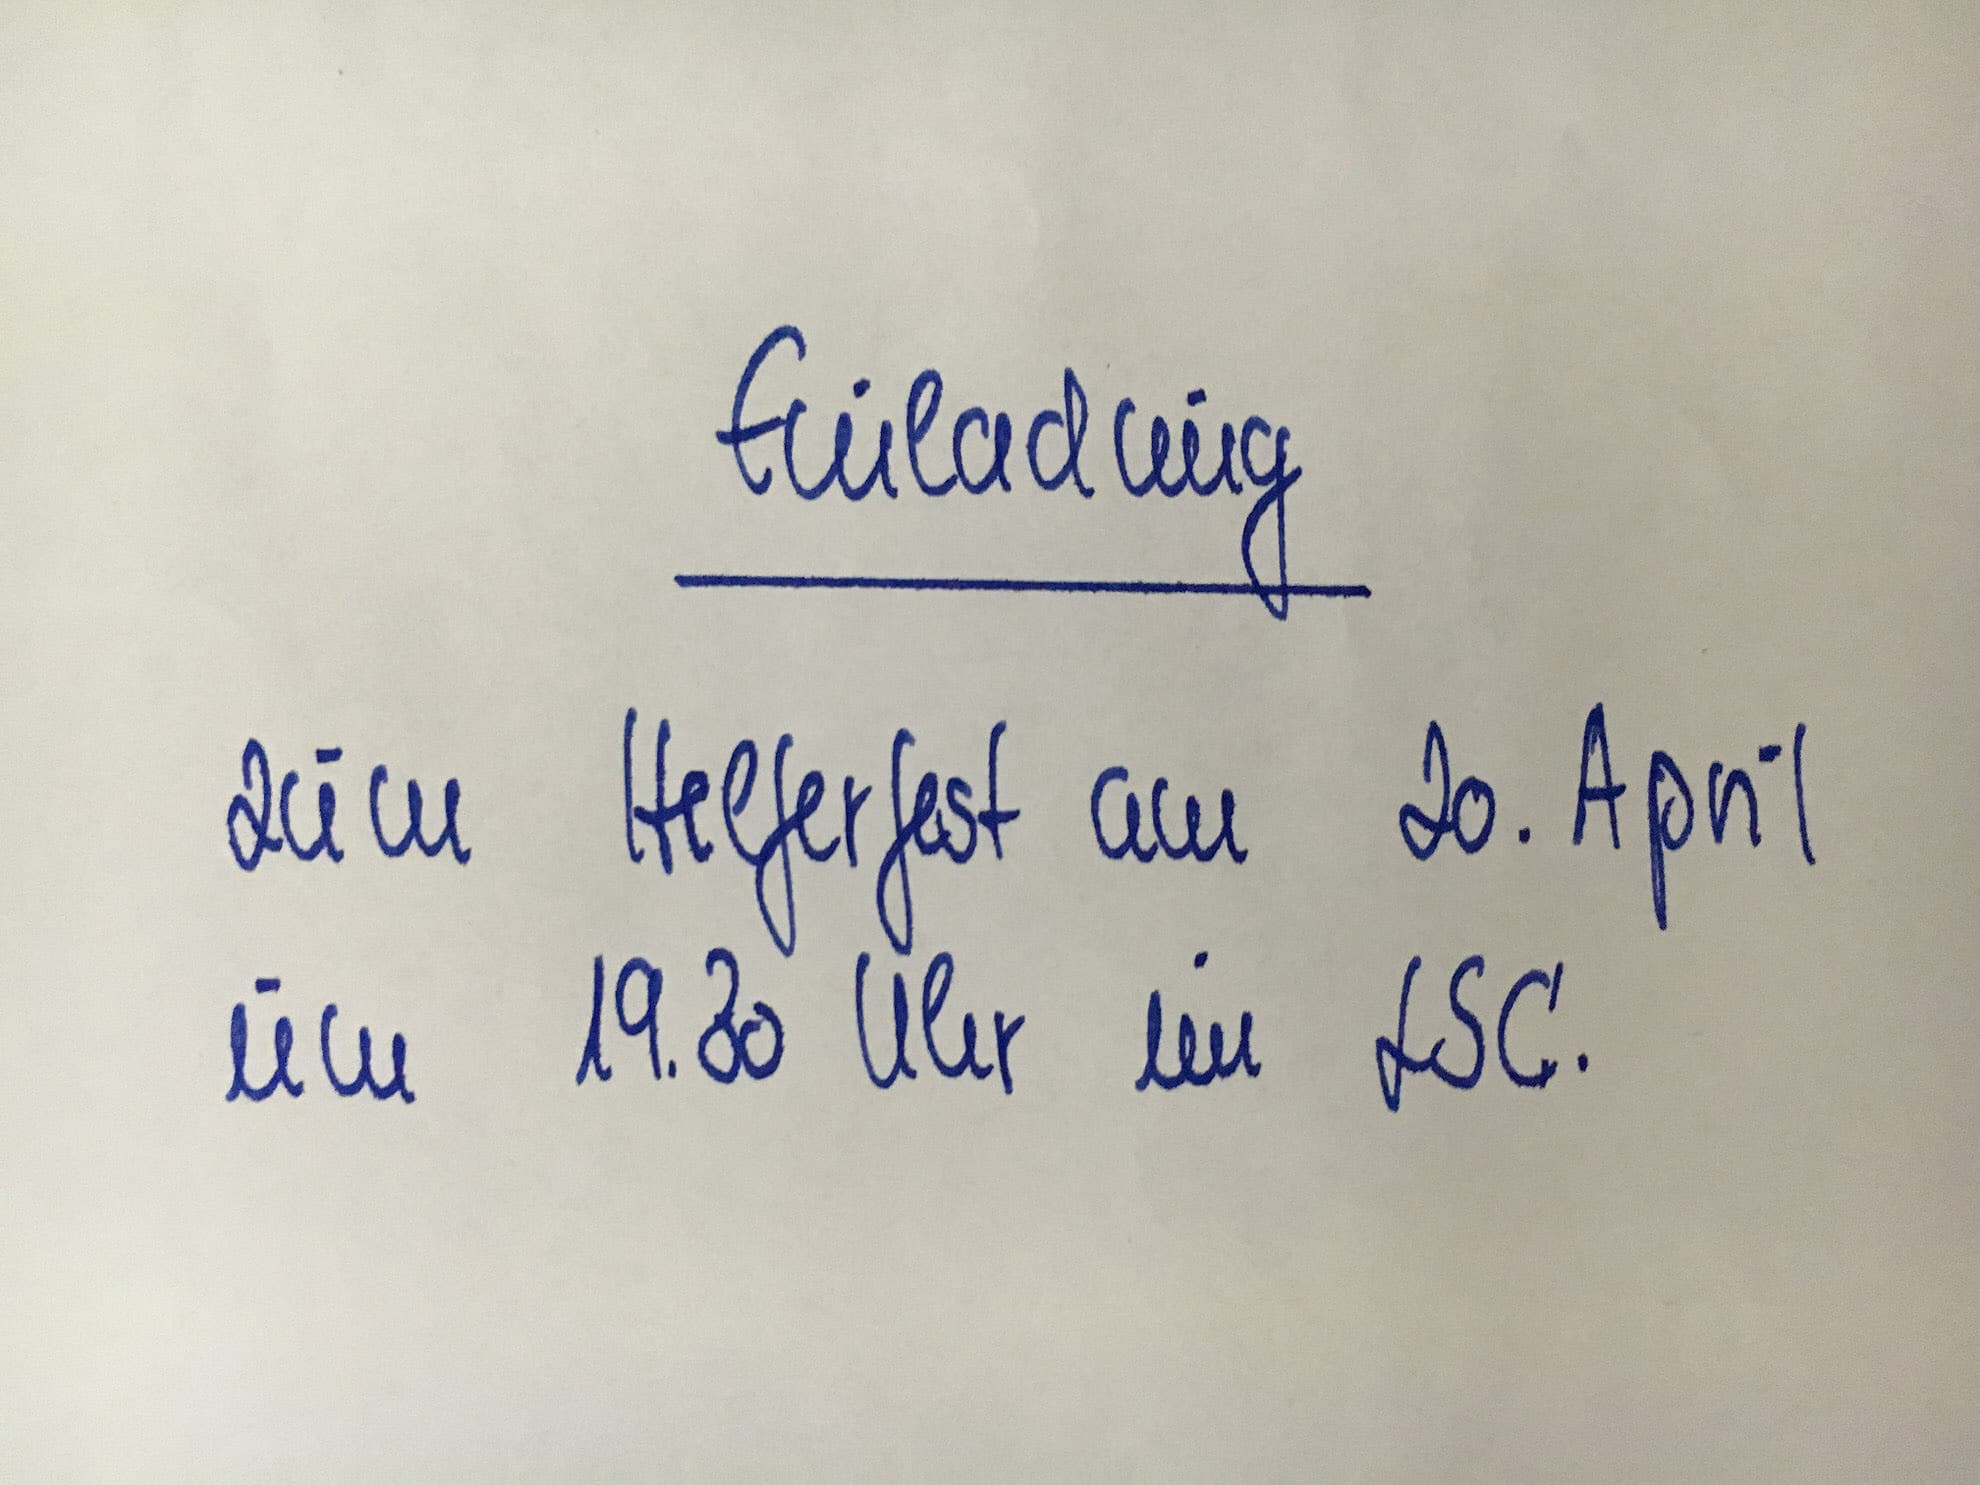 Einladung
zum Helferfest am 20. April
um 19.30 Uhr im LSC.